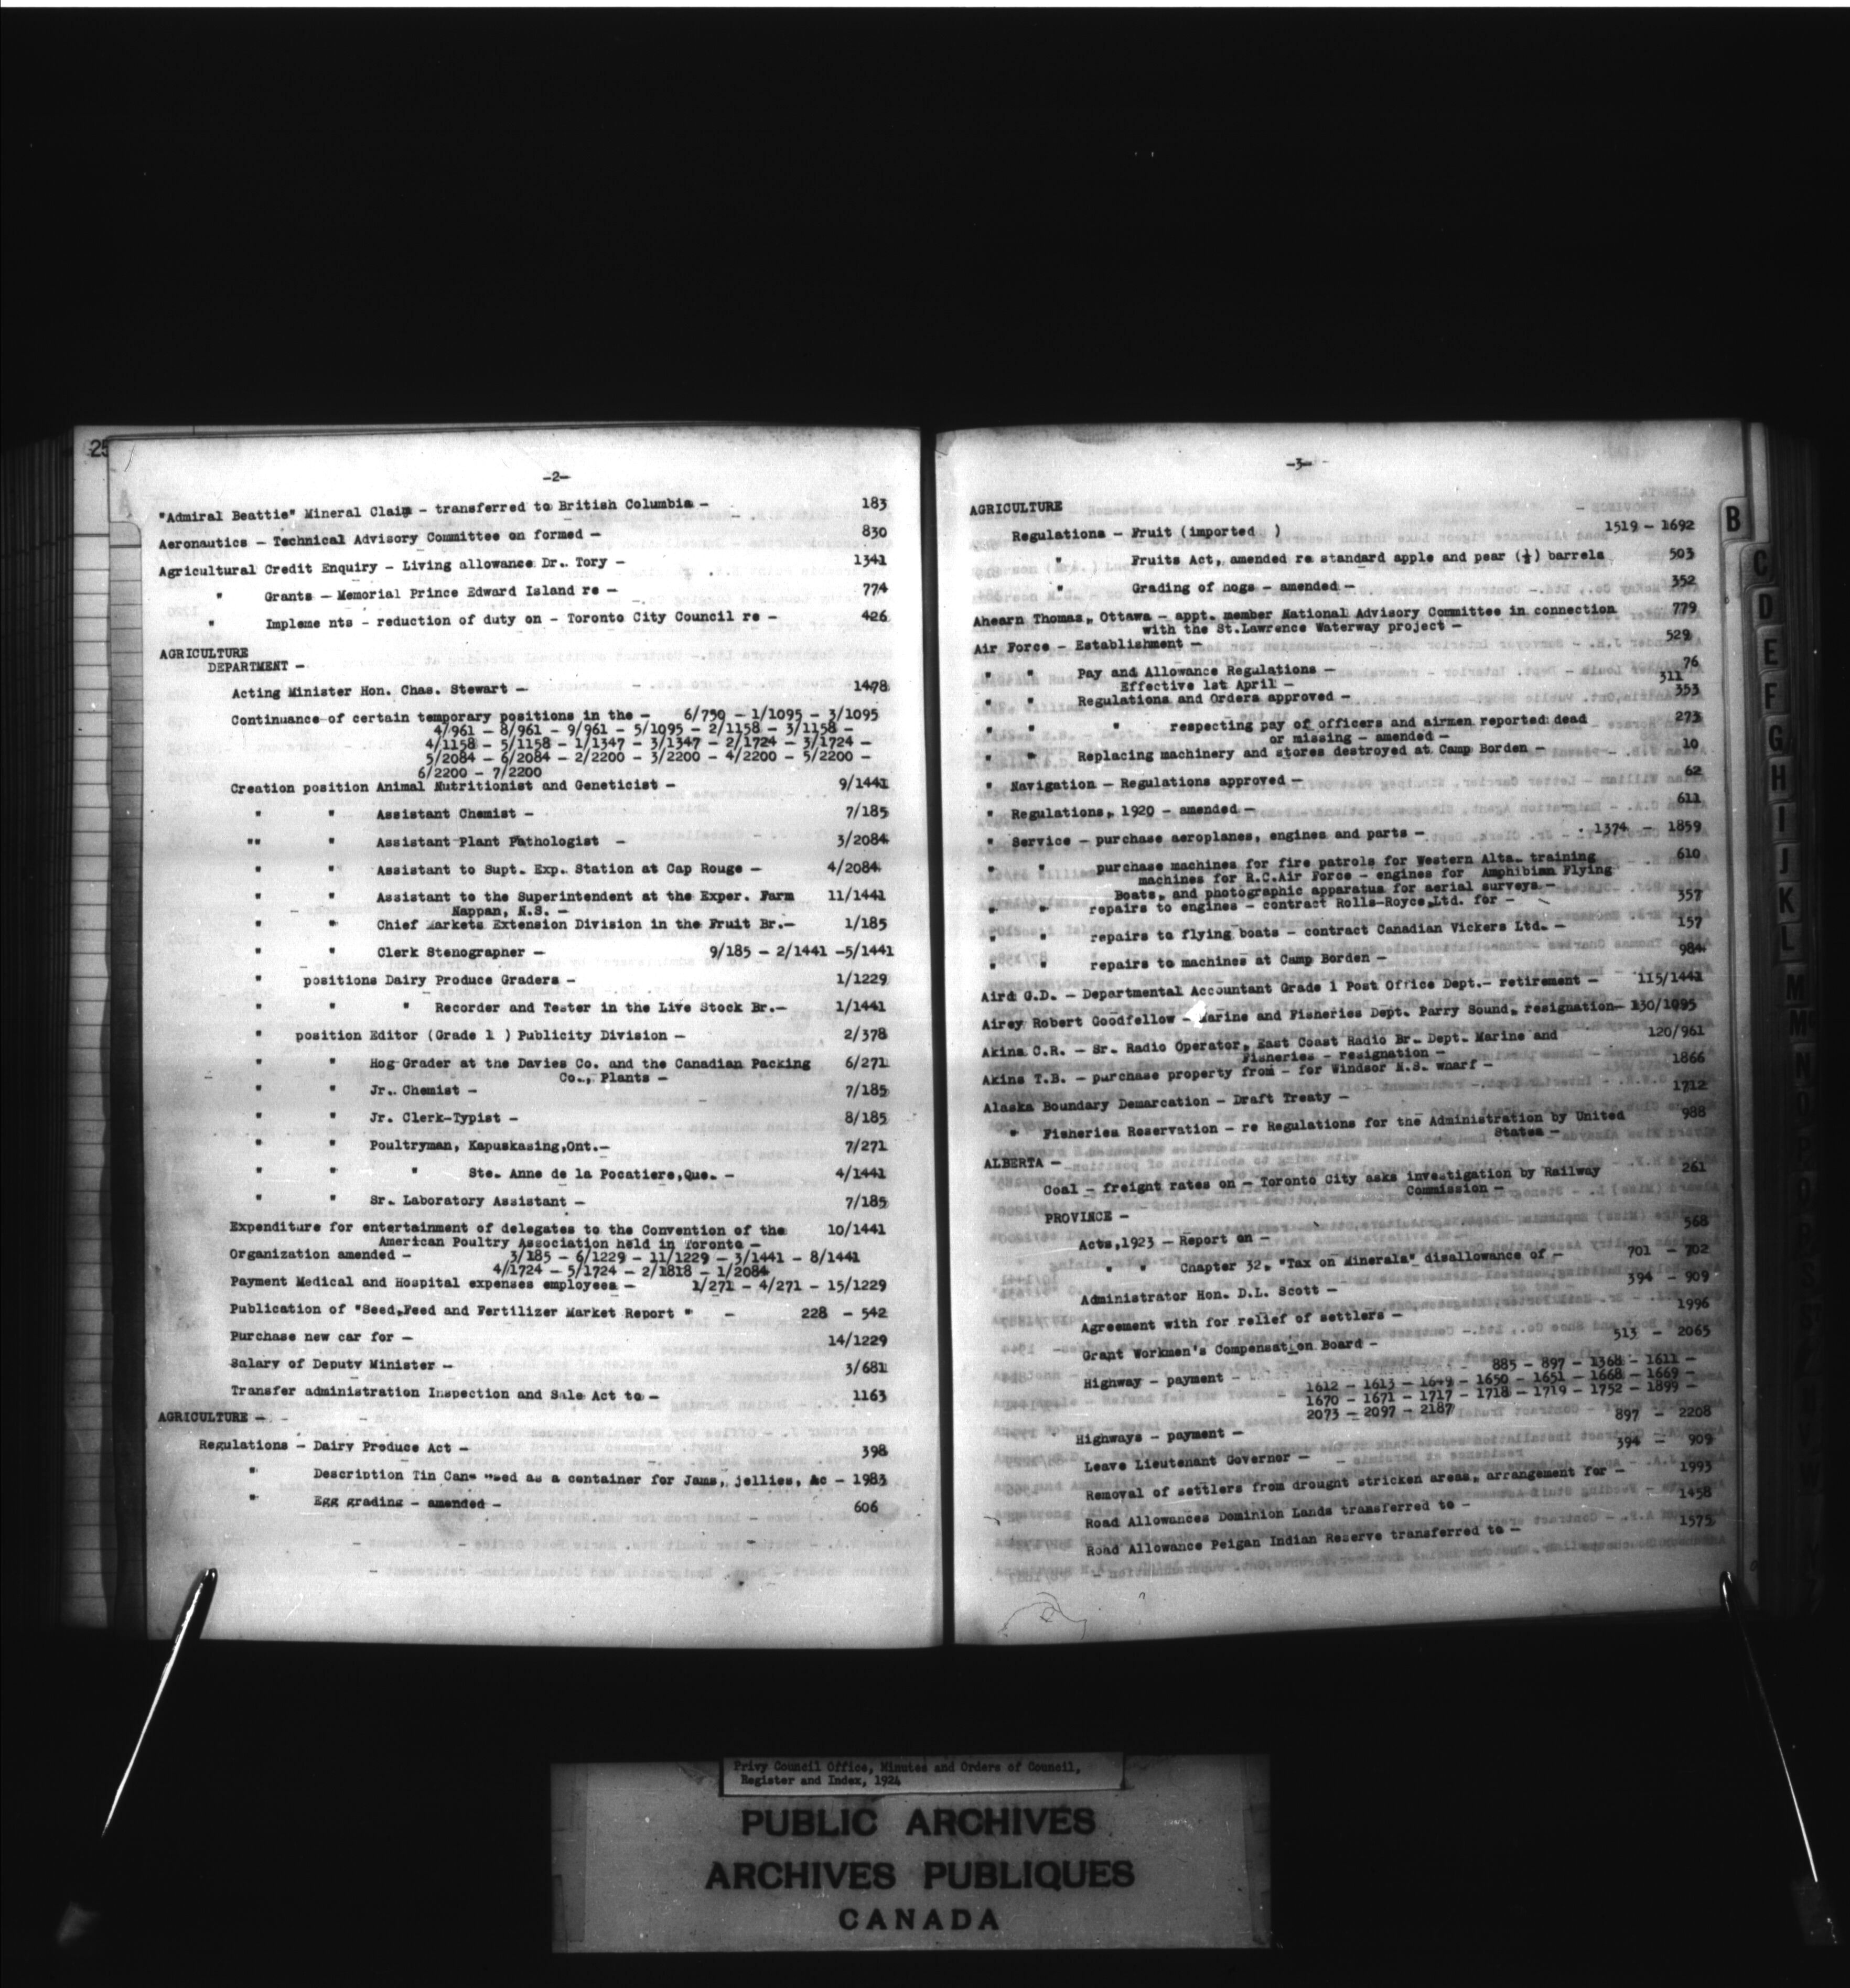 25
-2-
"Admiral Beattie" Mineral Claim - transferred to British Columbia - 183
Aeronautics - Technical Advisory Committee on formed - 830
Agricultural Credit Enquiry - Living allowance Dr. Tory - 1341
" Grants - Memorial Prince Edward Island re - 774
" Impleme nts - reduction of duty on - Toronto City Council re - 426
AGRICULTURE
DEPARTMENT -
Acting Minister Hon. Chas. Stewart - 1478
Continuance of certain temporary positions in the - 6/750 - 1/1095 - 3/1095
4/961 - 8/961 - 9/961 - 5/1095 - 2/1158 - 3/1158 -
4/1158 - 5/1158 - 1/1347 - 3/1347 - 2/1724 - 3/1724 -
5/2084 - 6/2084 - 2/2200 - 3/2200 - 4/2200 - 5/2200 -
6/2200 - 7/2200
Creation position Animal Nutritionist and Geneticist - 9/1441
" " Assistant Chemist - 7/185
"" " Assistant Plant Pathologist - 3/2084
" " Assistant to Supt. Exp. Station at Cap Rouge - 4/2084
" " Assistant to the Superintendent at the Exper. Farm 11/1441
Nappan, N.S. -
" " Chief Markets Extension Division in the Fruit Br.- 1/185
" " Clerk Stenographer - 9/185 - 2/1441 -5/1441
" positions Dairy Produce Graders - 1/1229
" " " Recorder and Tester in the Live Stock Br.- 1/1441
" position Editor (Grade 1 ) Publicity Division - 2/378
" " Hog Grader at the Davies Co. and the Canadian Packing 6/271
Co., Plants -
" " Jr. Chemist - 7/185
" " Jr. Clerk-Typist - 8/185
" " Poultryman, Kapuskasing,Ont.- 7/271
" " " Ste. Anne de la Pocatiere,Que. - 4/1441
" " Sr. Laboratory Assistant - 7/185
Expenditure for entertainment of delegates to the Convention of the 10/1441
American Poultry Association held in Toronto -
Organization amended - 3/185 - 6/1229 - 11/1229 - 3/1441 - 8/1441
4/1724 - 5/1724 - 2/1818 - 1/2084
Payment Medical and Hospital expenses employees - 1/271 - 4/271 - 15/1229
Publication of "Seed,Feed and Fertilizer Market Report " - 228 - 542
Purchase new car for - 14/1229
Salary of Deputy Minister - 3/681
Transfer administration Inspection and Sale Act to - 1163
AGRICULTURE -
Regulations - Dairy Produce Act - 398
" Description Tin Cans used as a container for Jams, jellies, &c - 1983
" Egg grading - amended - 606
-3-
AGRICULTURE
Regulations - Fruit (imported ) 1519 - 1692
" Fruits Act, amended re standard apple and pear (½) barrels 503
" Grading of hogs - amended - 352
Ahearn Thomas, Ottawa - appt. member National Advisory Committee in connection 779
with the St.Lawrence Waterway project -
Air Force - Establishment - 529
" " Pay and Allowance Regulations - 76
Effective 1st April - 311
" " Regulations and Orders approved - 353
" " " respecting pay of officers and airmen reported dead 273
or missing - amended -
" " Replacing machinery and stores destroyed at Camp Borden - 10
" Navigation - Regulations approved - 62
" Regulations, 1920 - amended - 611
" Service - purchase aeroplanes, engines and parts - 1374 - 1859
" " purchase machines for fire patrols for Western Alta. training 610
machines for R.C.Air Force - engines for Amphibian Flying
Boats, and photographic apparatus for aerial surveys -
" " repairs to engines - contract Rolls-Royce Ltd. for - 357
" " repairs to flying boats - contract Canadian Vickers Ltd. - 157
" " repairs to machines at Camp Borden - 984
Aird G.D. - Departmental Accountant Grade 1 Post Office Dept.- retirement - 115/1441
Airey Robert Goodfellow - Marine and Fisheries Dept. Parry Sound, resignation- 130/1095
Akins C.R. - Sr. Radio Operator, East Coast Radio Br. Dept. Marine and 120/961
Fisheries - resignation -
Akins T.B. - purchase property from - for Windsor N.S. wharf - 1866
Alaska Boundary Demarcation - Draft Treaty - 1712
" Fisheries Reservation - re Regulations for the Administration by United 988
States -
ALBERTA -
Coal - freight rates on - Toronto City asks investigation by Railway 261
Commission -
PROVINCE -
Acts,1923 - Report on - 568
" " Chapter 32, "Tax on Minerals" disallowance of - 701 - 702
Administrator Hon. D.L. Scott - 394 - 909
Agreement with for relief of settlers - 1996
Grant Workmen's Compensation Board - 513 - 2065
Highway - payment - 885 - 897 - 1368 - 1611 -
1612 - 1613 - 1649 - 1650 - 1651 - 1668 - 1669 -
1670 - 1671 - 1717 - 1718 - 1719 - 1752 - 1899 -
2073 - 2097 - 2187
Highways - payment - 897 - 2208
Leave Lieutenant Governor - 394 - 909
Removal of settlers from drought stricken areas, arrangement for - 1993
Road Allowances Dominion Lands transferred to - 1458
Road Allowance Peigan Indian Reserve transferred to - 1575
B
C
D
E
F
G
H
I
J
K
L
M
Privy Council Office, Minutes and Orders of Council,
Register and Index, 1924
PUBLIC ARCHIVES
ARCHIVES PUBLIQUES
CANADA